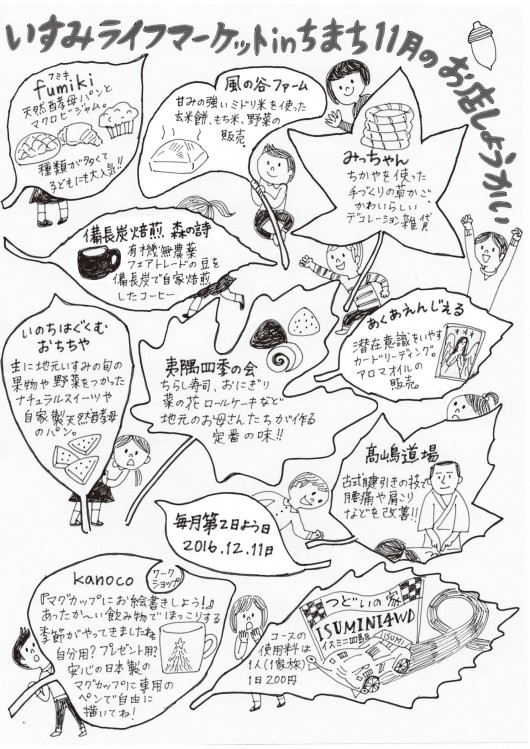 いすみライフマーケットinちまち11月のお店しょうかい
フミキ
fumiki
天然酵母パンと
マクロビジャム。
種類が多くて
子どもに大人気!!
風の谷ファーム
甘みの強いミドリ米を使った
玄米餅、もち米、野菜の
販売。
みっちゃん
ちかやを使った
手づくりの草かご
かわいらしい
デコレーション雑貨
備長炭焙煎 森の詩
有機無農薬
フェアトレードの豆を
備長炭で自家焙煎
したコーヒー
いのちはぐくむ
おちちや
主に地元いすみの旬の
果物や野菜をつかった
ナチュラルスイーツや
自家製天然酵母
のパン。
夷隅四季の会
ちらし寿司、おにぎり
菜の花ロールケーキなど
地元のお母さんたちが作る
定番の味!!
あくあえんじぇる
潜在意識をいやす
カードリーディング。
アロマオイルの
販売。
髙嶋道場
古式腱引きの技で
腰痛や肩こり
などを改善!!
毎月第2日よう日
2016.12.11日
kanoco
ワークショップ
『マグカップにお絵書きしよう!』
あったか〜い飲み物でほっこりする
季節がやってきましたね
自分用?プレゼント用?
安心の日本製の
マグカップに専用の
ペンで自由に
描いてね!
つどいの家
ISUMINI4WD
イスミニ四駆
ISUMI
コースの
使用料は
1人(1家族)
1日200円